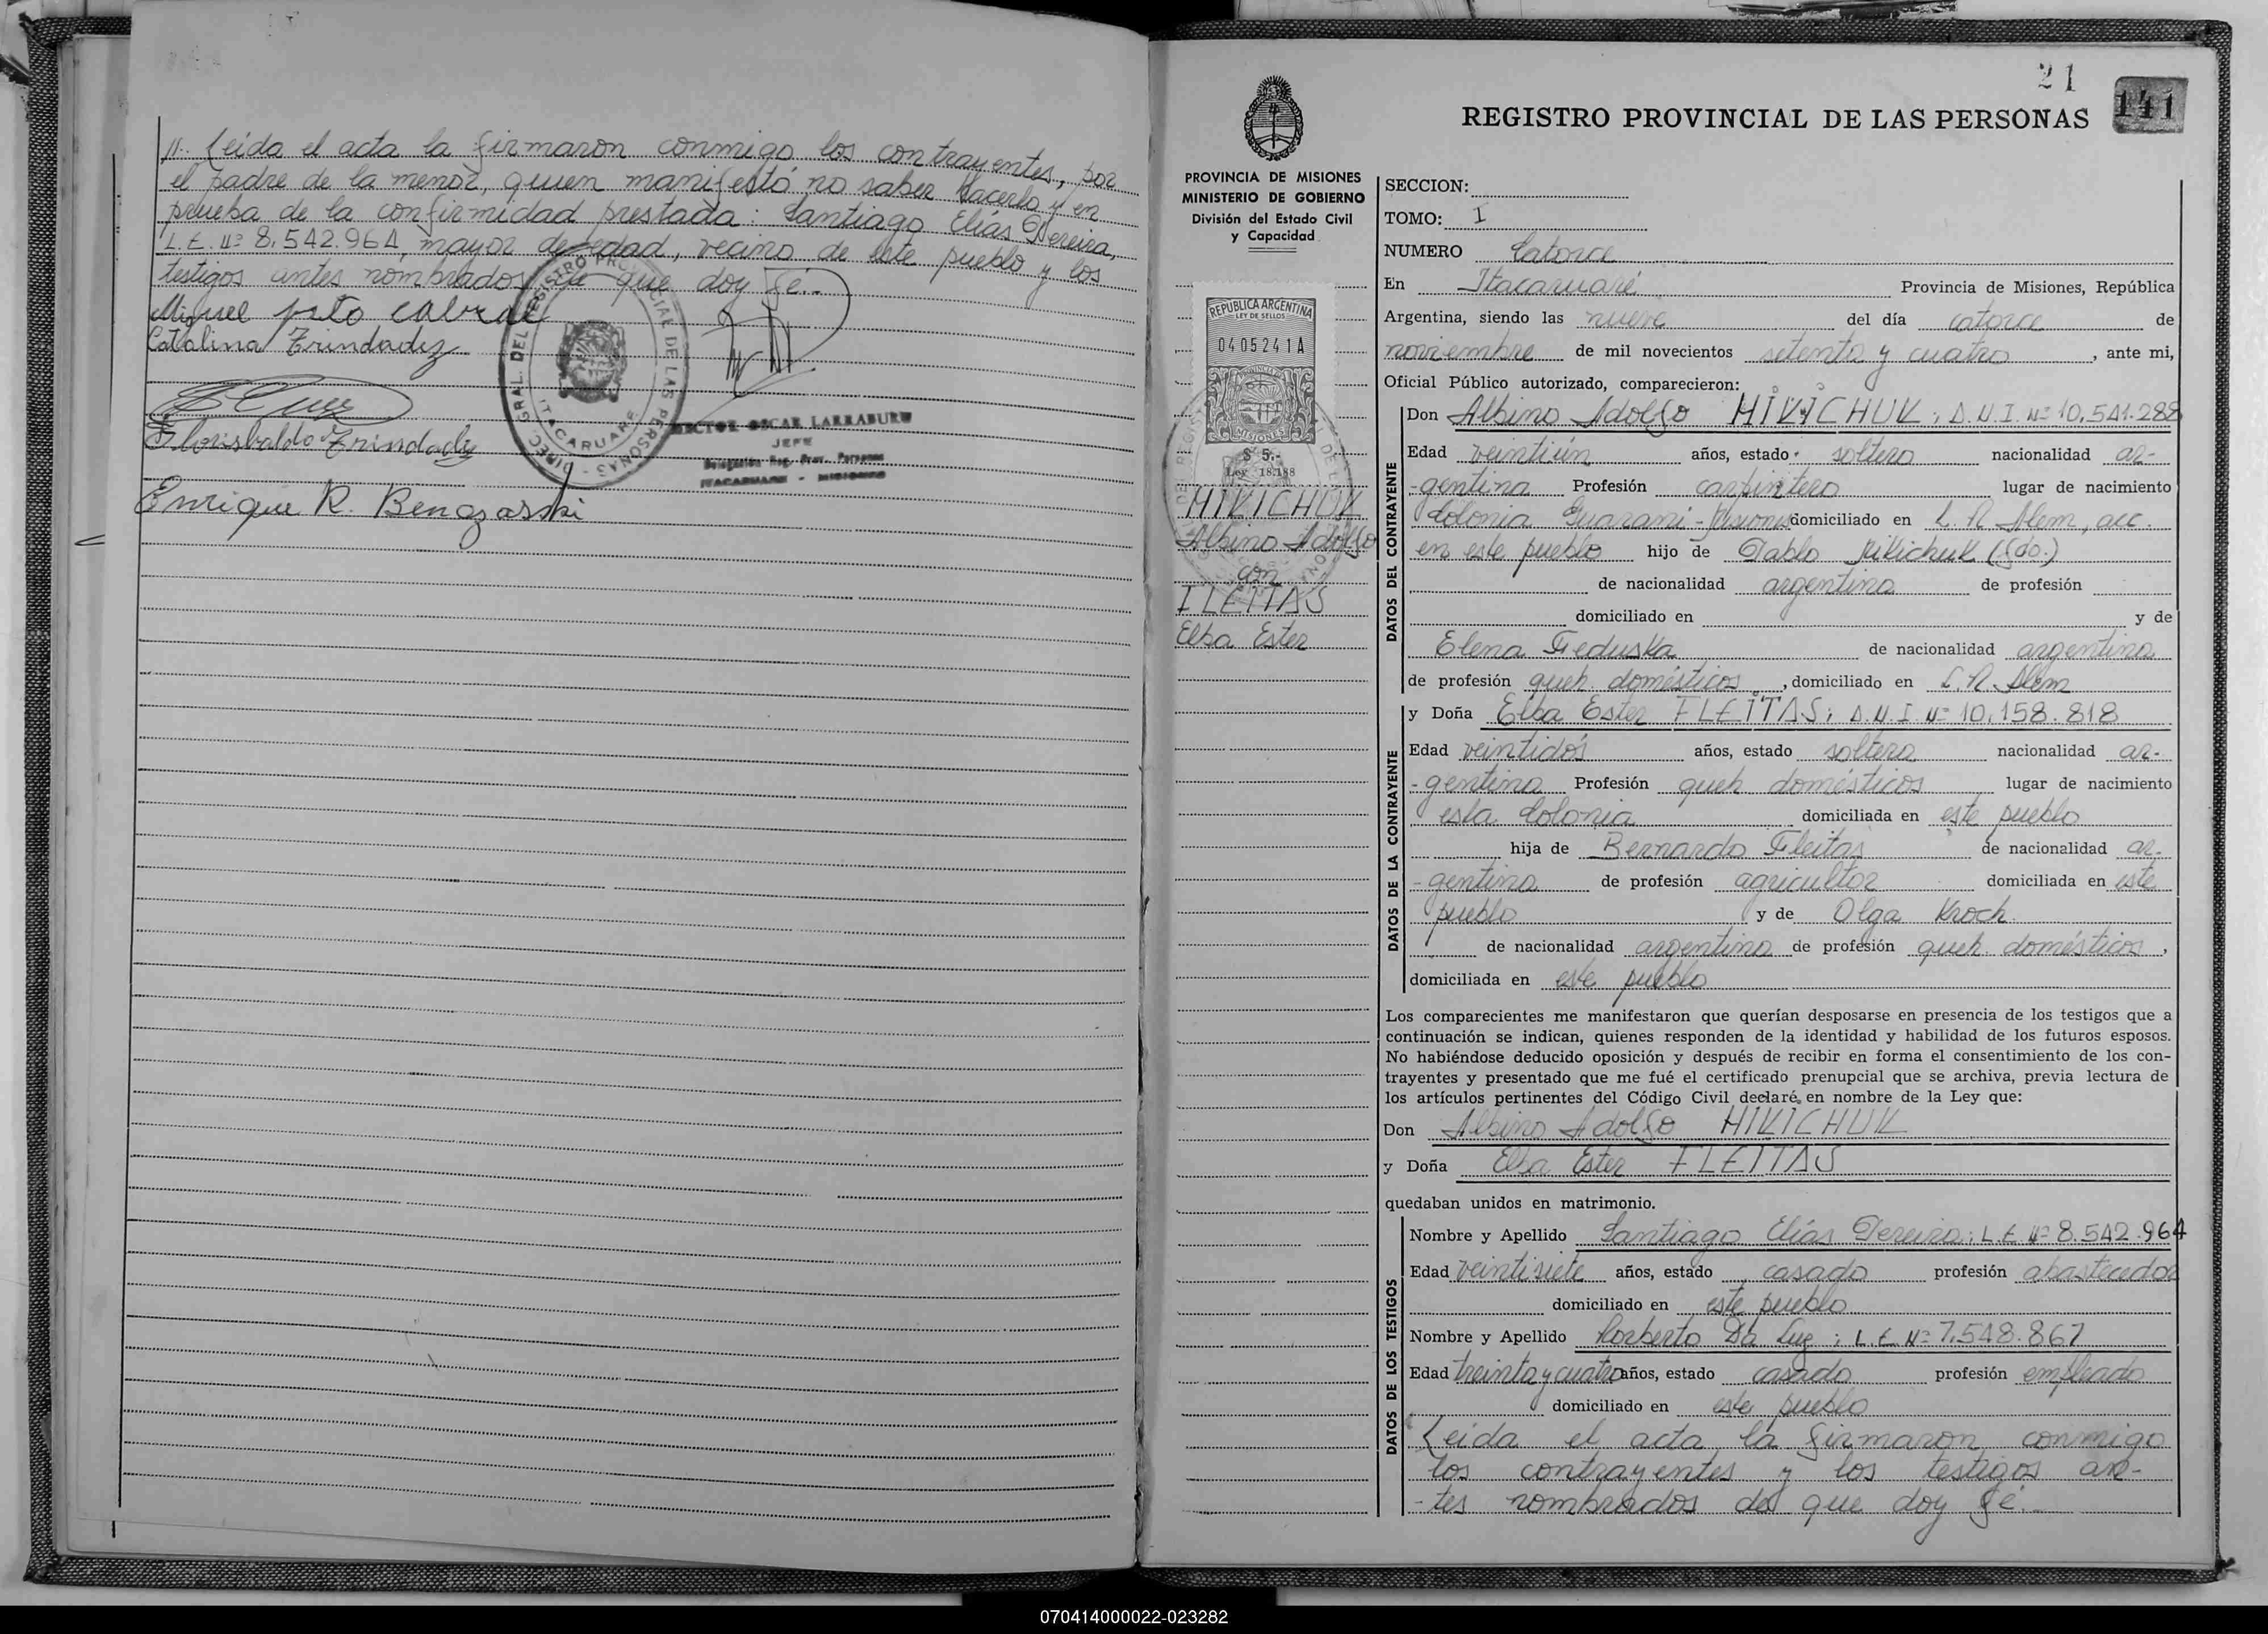 //- Leída el acta la firmaron conmigo los contrayentes, por
el padre de la menor, quien manifestó no saber hacerlo y en
prueba de la confirmidad prestada: Santiago Elías Pereira,
L.E. Nº 8.542.964 mayor de edad, vecino de este pueblo y los
testigos antes nombrados de que doy fé.-
Miguel
Catalina Trindadez
Florisbaldo Trindadez
Enrique R. Bengzaski
DIREC. GRAL. DEL REGISTRO PROVINCIAL DE LAS PERSONAS - ITACARUARE
HECTOR OSCAR LARRABURU
JEFE
Delegación Reg. Prov. Personas
ITACARUARE - MISIONES
21
141
REGISTRO PROVINCIAL DE LAS PERSONAS
PROVINCIA DE MISIONES
MINISTERIO DE GOBIERNO
División del Estado Civil
y Capacidad
REPUBLICA ARGENTINA
LEY DE SELLOS
0405241A
MISIONES
$ 5.-
Ley 18.188
MIKICHUK
Albino Adolfo
con
FLEITAS
Elba Ester
SECCION:
TOMO: I
NUMERO Catorce
En Itacaruaré Provincia de Misiones, República
Argentina, siendo las nueve del día catorce de
noviembre de mil novecientos setenta y cuatro, ante mi,
Oficial Público autorizado, comparecieron:
DATOS DEL CONTRAYENTE
Don Albino Adolfo MIKICHUK; D.N.I. Nº 10.541.288
Edad veintiún años, estado soltero nacionalidad ar-
-gentina Profesión carpintero lugar de nacimiento
Colonia Guaraní-Misiones domiciliado en L. N. Alem, acc.
en este pueblo hijo de Pablo Mikichuk (fdo.)
de nacionalidad argentina de profesión
domiciliado en y de
Elena Feduska de nacionalidad argentina
de profesión queh. domésticos, domiciliado en L. N. Alem
DATOS DE LA CONTRAYENTE
y Doña Elba Ester FLEITAS; D.N.I. Nº 10.158.818
Edad veintidós años, estado soltera nacionalidad ar-
-gentina Profesión queh domésticos lugar de nacimiento
esta Colonia domiciliada en este pueblo
hija de Bernardo Fleitas de nacionalidad ar-
-gentina de profesión agricultor domiciliada en este
pueblo y de Olga Kroch
de nacionalidad argentina de profesión queh. domésticos,
domiciliada en este pueblo
Los comparecientes me manifestaron que querían desposarse en presencia de los testigos que a
continuación se indican, quienes responden de la identidad y habilidad de los futuros esposos.
No habiéndose deducido oposición y después de recibir en forma el consentimiento de los con-
trayentes y presentado que me fué el certificado prenupcial que se archiva, previa lectura de
los artículos pertinentes del Código Civil declaré en nombre de la Ley que:
Don Albino Adolfo MIKICHUK
y Doña Elba Ester FLEITAS
quedaban unidos en matrimonio.
DATOS DE LOS TESTIGOS
Nombre y Apellido Santiago Elías Pereira; L.E. Nº 8.542.964
Edad veintisiete años, estado casado profesión abastecedor
domiciliado en este pueblo
Nombre y Apellido Norberto Da Luz; L.E. Nº 7.548.867
Edad treinta y cuatro años, estado casado profesión empleado
domiciliado en este pueblo
Leída el acta la firmaron conmigo
los contrayentes y los testigos an-
-tes nombrados de que doy fé.-
070414000022-023282